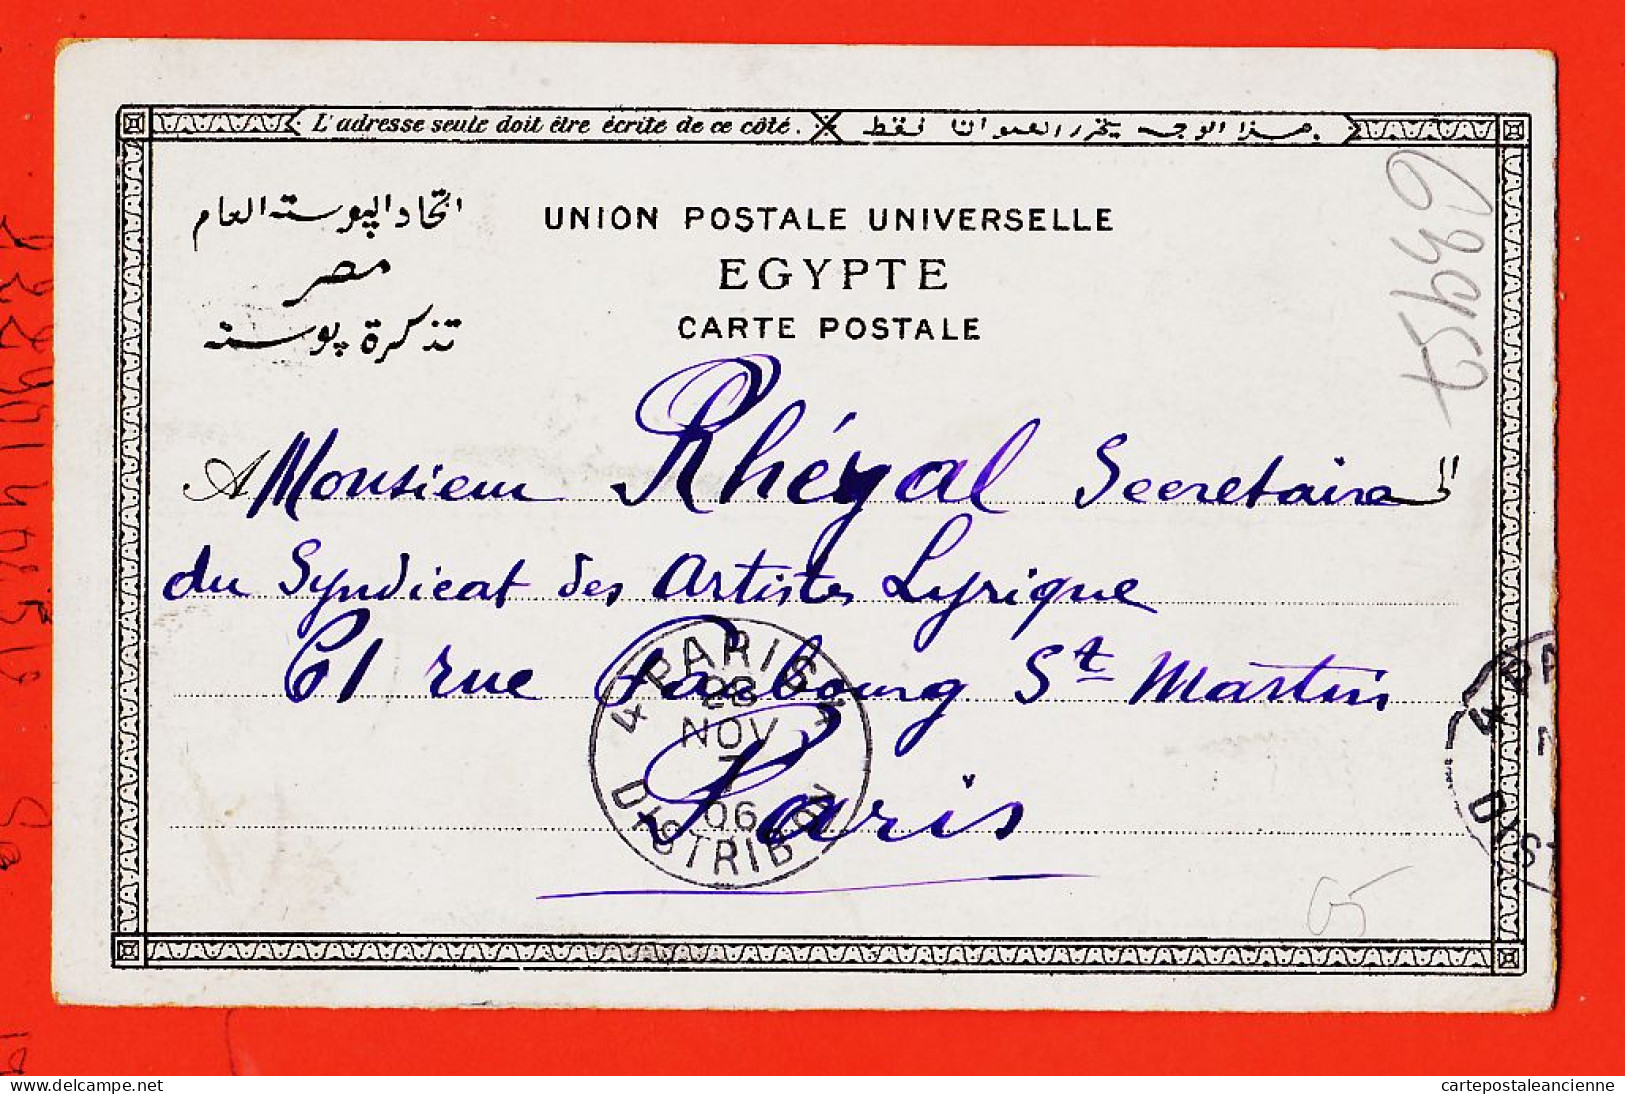 L'adresse seule doit être écrite de ce côté.
هذا الوجه يتحرر العنوان فقط.
اتحاد البوسته العام
مصر
تذكرة بوسته
UNION POSTALE UNIVERSELLE
EGYPTE
CARTE POSTALE
A Monsieur Rhégal Secretaire
du Syndicat des Artistes Lyrique
61 rue Faubourg St Martin
Paris
4 PARIS 4
28
NOV
06
DISTRIBON
65
cartes-postales-delcampe.net
cartepostaleancienne